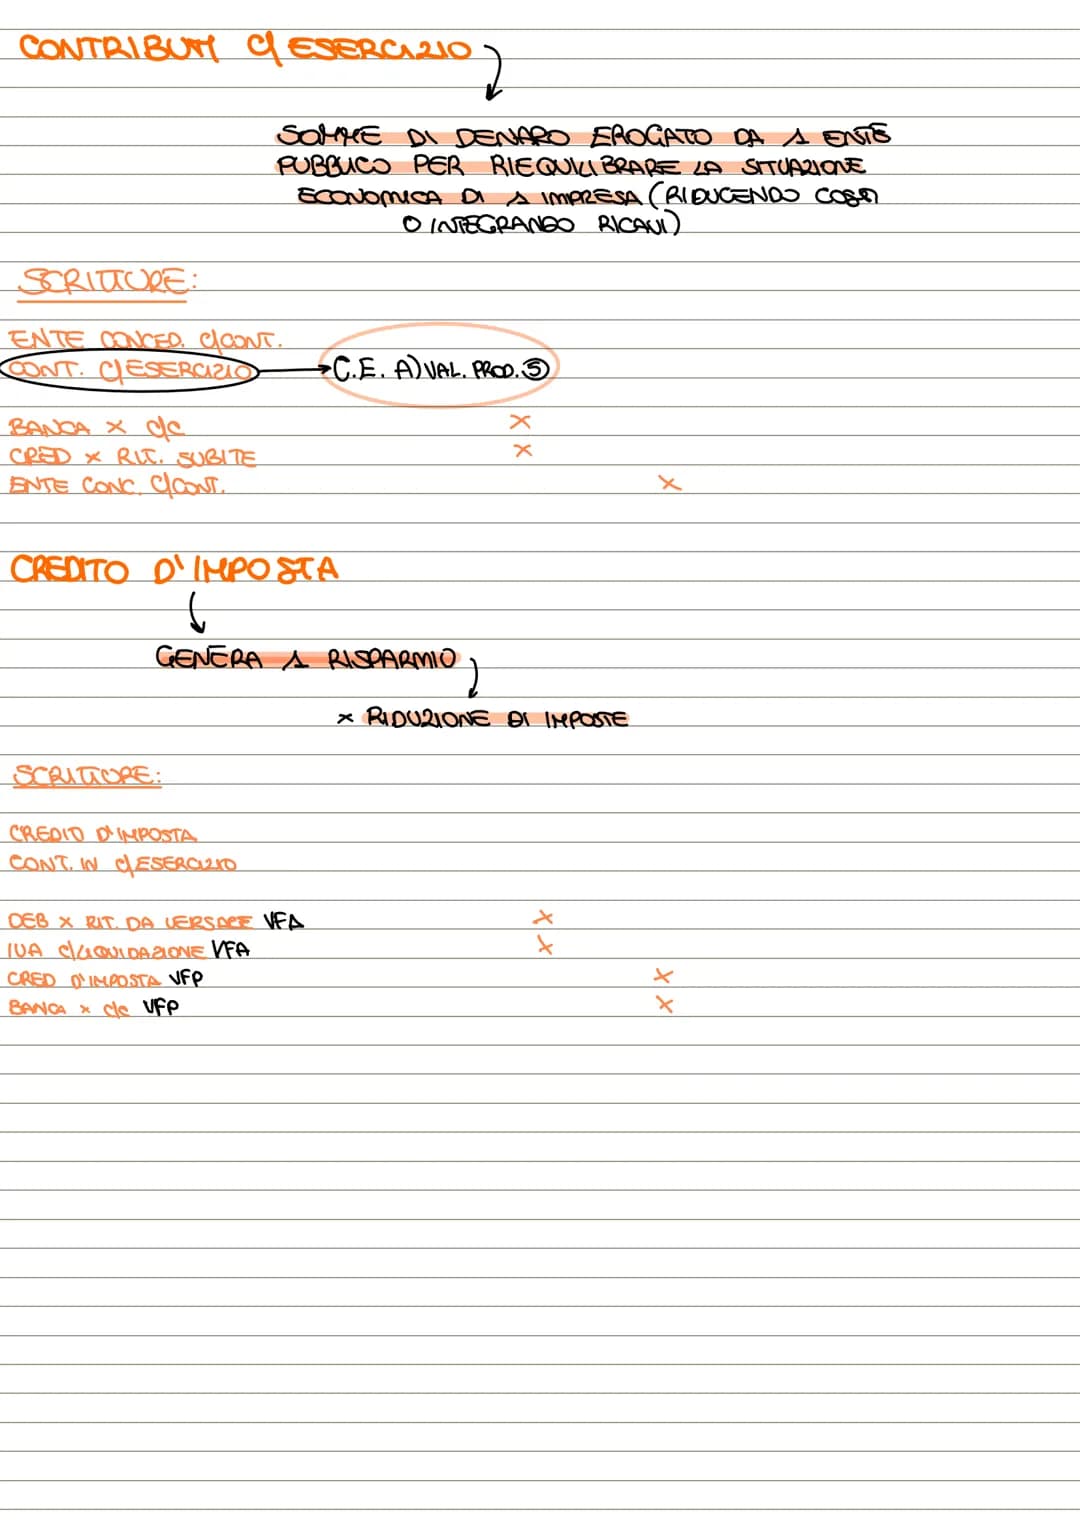 CONTRIBUTI C/ ESERCIZIO
SOMME DI DENARO EROGATO DA 1 ENTE
PUBBLICO PER RIEQUILIBRARE LA SITUAZIONE
ECONOMICA DI 1 IMPRESA (RIDUCENDO COSTI
O INTEGRANDO RICAVI)
SCRITTURE:
ENTE CONCED. C/CONT.
CONT. C/ESERCIZIO → C.E. A) VAL. PROD. 5
BANCA X C/C X
CRED X RIT. SUBITE X
ENTE CONC. C/CONT. X
CREDITO D'IMPOSTA
GENERA 1 RISPARMIO
X RIDUZIONE DI IMPOSTE
SCRITTURE:
CREDITO D'IMPOSTA
CONT. IN C/ESERCIZIO
DEB X RIT. DA VERSARE VFA X
IVA C/LIQUIDAZIONE VFA X
CRED D'IMPOSTA VFP X
BANCA X C/C VFP X